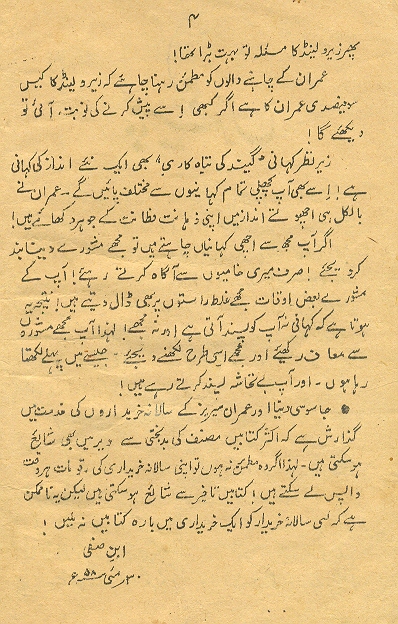 ۴
پھر زیرو لینڈ کا مسئلہ تو بہت بڑا تھا!
عمران کے چاہنے والوں کو مطمئن رہنا چاہئے کہ زیرو لینڈ کا کیس
سو فیصدی عمران کا ہے اگر کبھی اسے پیش کرنے کی نوبت آئی تو
دیکھئے گا!
زیر نظر کہانی "گیند کی تباہ کاری" بھی ایک نئے انداز کی کہانی
ہے! اسے بھی آپ پچھلی تمام کہانیوں سے مختلف پائیں گے۔ عمران نے
بالکل ہی اچھوتے انداز میں اپنی ذہانت و فطانت کے جوہر دکھائے ہیں!
اگر آپ مجھ سے اچھی کہانیاں چاہتے ہیں تو مجھے مشورے دینا بند
کر دیجئے! صرف میری خامیوں سے آگاہ کرتے رہئے! آپ کے
مشورے بعض اوقات مجھے غلط راستوں پر بھی ڈال دیتے ہیں! نتیجہ یہ
ہوتا ہے کہ کہانی نہ آپ کو پسند آتی ہے اور نہ مجھے! لہذا آپ مجھے مشوروں
سے معاف رکھیئے اور مجھے اسی طرح لکھنے دیجئے۔ جیسے میں پہلے لکھتا
رہا ہوں۔ اور آپ بے تحاشہ پسند کرتے رہے ہیں!
● جاسوسی دنیا اور عمران سیریز کے سالانہ خریداروں کی خدمت میں
گذارش ہے کہ اکثر کتابیں مصنف کی بدبختی سے دیر میں بھی شائع
ہو سکتی ہیں۔ لہذا اگر وہ مطمئن نہ ہوں تو اپنی سالانہ خریداری کی رقومات ہر وقت
واپس لے سکتے ہیں! کتابیں تاخیر سے شائع ہو سکتی ہیں لیکن یہ ناممکن
ہے کہ کسی سالانہ خریدار کو ایک خریداری میں بارہ کتابیں نہ ملیں!
ابن صفی
۳۰ مئی ۵۸ء